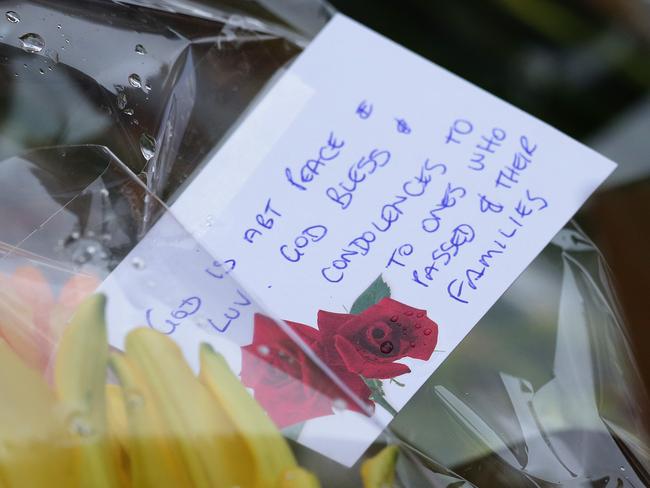 GOD IS ABT PEACE &
LUV. GOD BLESS &
CONDOLENCES TO
TO ONES WHO
PASSED & THEIR
FAMILIES